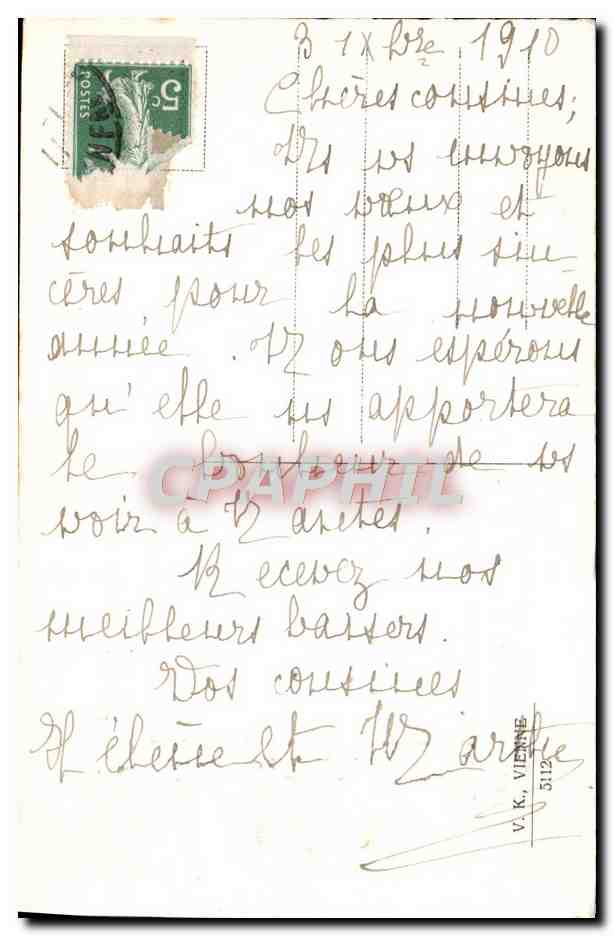 3 1 Xbre 1910
Chères cousines,
Ns vs envoyons
nos vœux et
souhaits les plus sin
cères pour la nouvelle
année. Nous espérons
qu'elle ns apportera
le bonheur de vs
voir à Nantes.
Recevez nos
meilleurs baisers.
Vos cousines
Hélène et Marthe
5 c
POSTES
CPAPHIL
V. K., VIENNE
5112